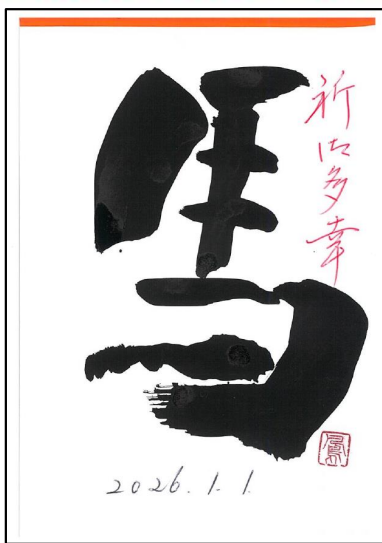 馬
祈御多幸
2026.1.1.
鳳